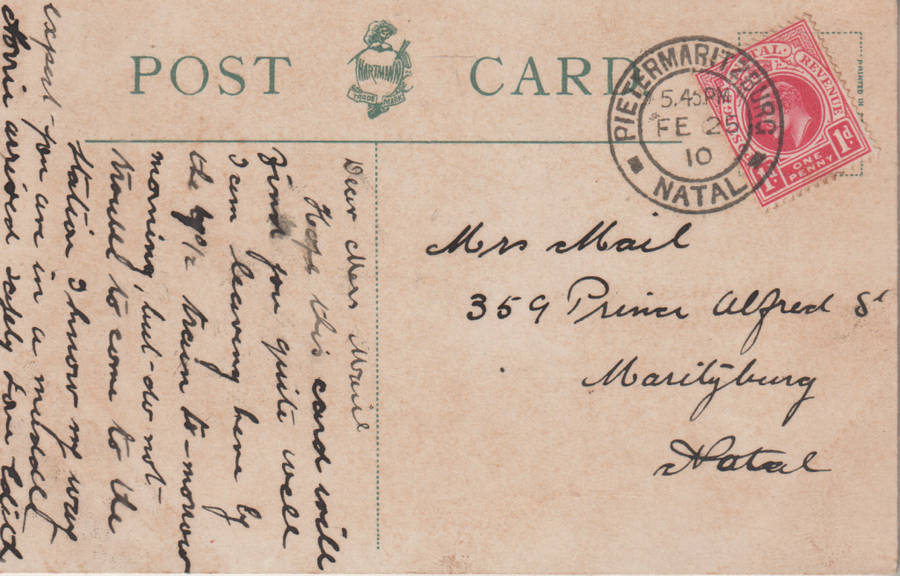 POST CARD
HARTMANN
TRADE MARK
PRINTED IN
PIETERMARITZBURG
5.45PM
FE 25
10
NATAL
NATAL REVENUE
POSTAGE
1d
ONE PENNY
1d
Mrs Mail
359 Prince Alfred St
Maritzburg
Natal
Dear Mrs Mail
Hope this card will
find you quite well
I am leaving here by
the train to-morrow
morning, but do not
trouble to come to the
station I know my way
expect you are in a muddle
arrived safely love Edith